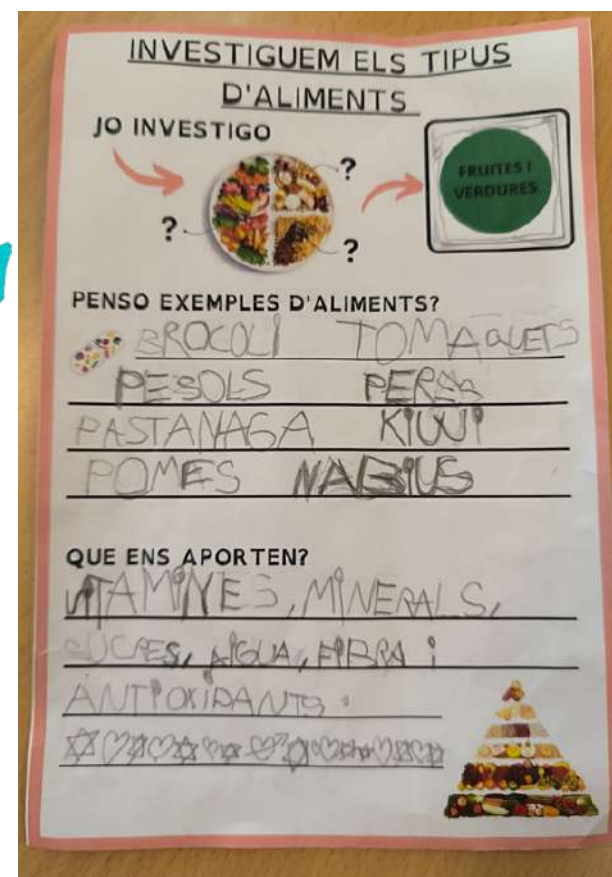 INVESTIGUEM ELS TIPUS
D'ALIMENTS
JO INVESTIGO
?
?
?
FRUITES I
VERDURES
PENSO EXEMPLES D'ALIMENTS?
BROCOLI TOMAQUETS
PESOLS PERES
PASTANAGA KIWI
POMES NABIUS
QUE ENS APORTEN?
VITAMINES, MINERALS,
SUCRES, AIGUA, FIBRA i
ANTIOXIDANTS.